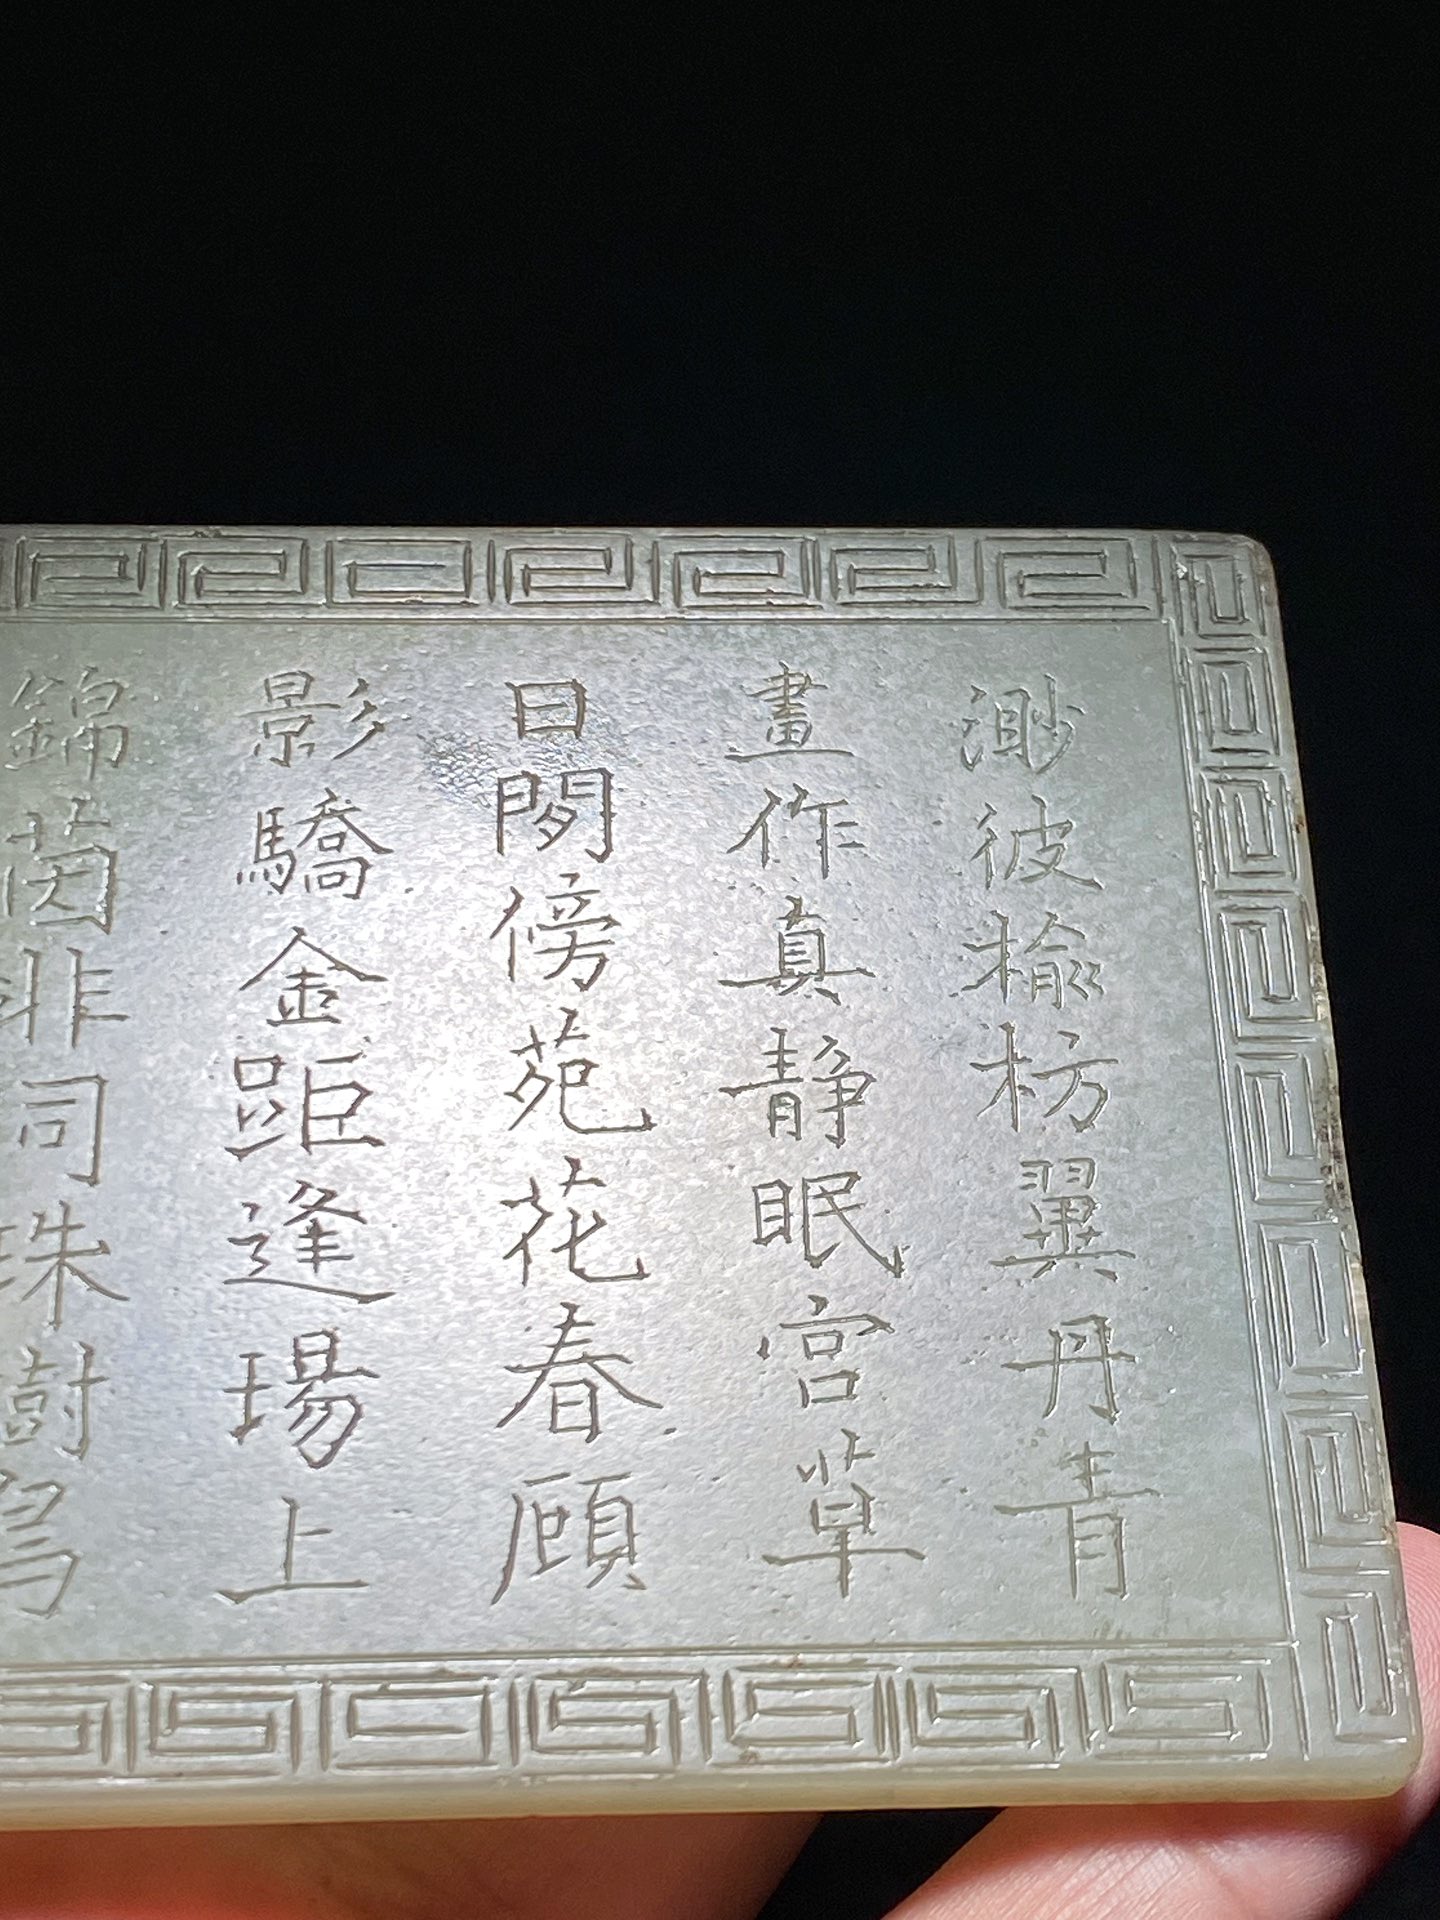 渺彼榆枋翼丹青
畫作真靜眠宮草
日閒傍苑花春顧
影驕金距逢場上
錦茵非同珠樹